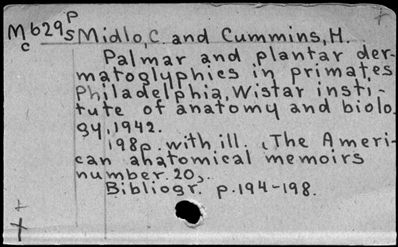 M629p Midlo, C. and Cummins, H.
c s
Palmar and plantar der-
matoglyphics in primates
Philadelphia, Wistar insti-
tute of anatomy and biolo
gy, 1942.
198p. with ill. (The Ameri-
can anatomical memoirs
number 20).
Bibliogr. p. 194-198.